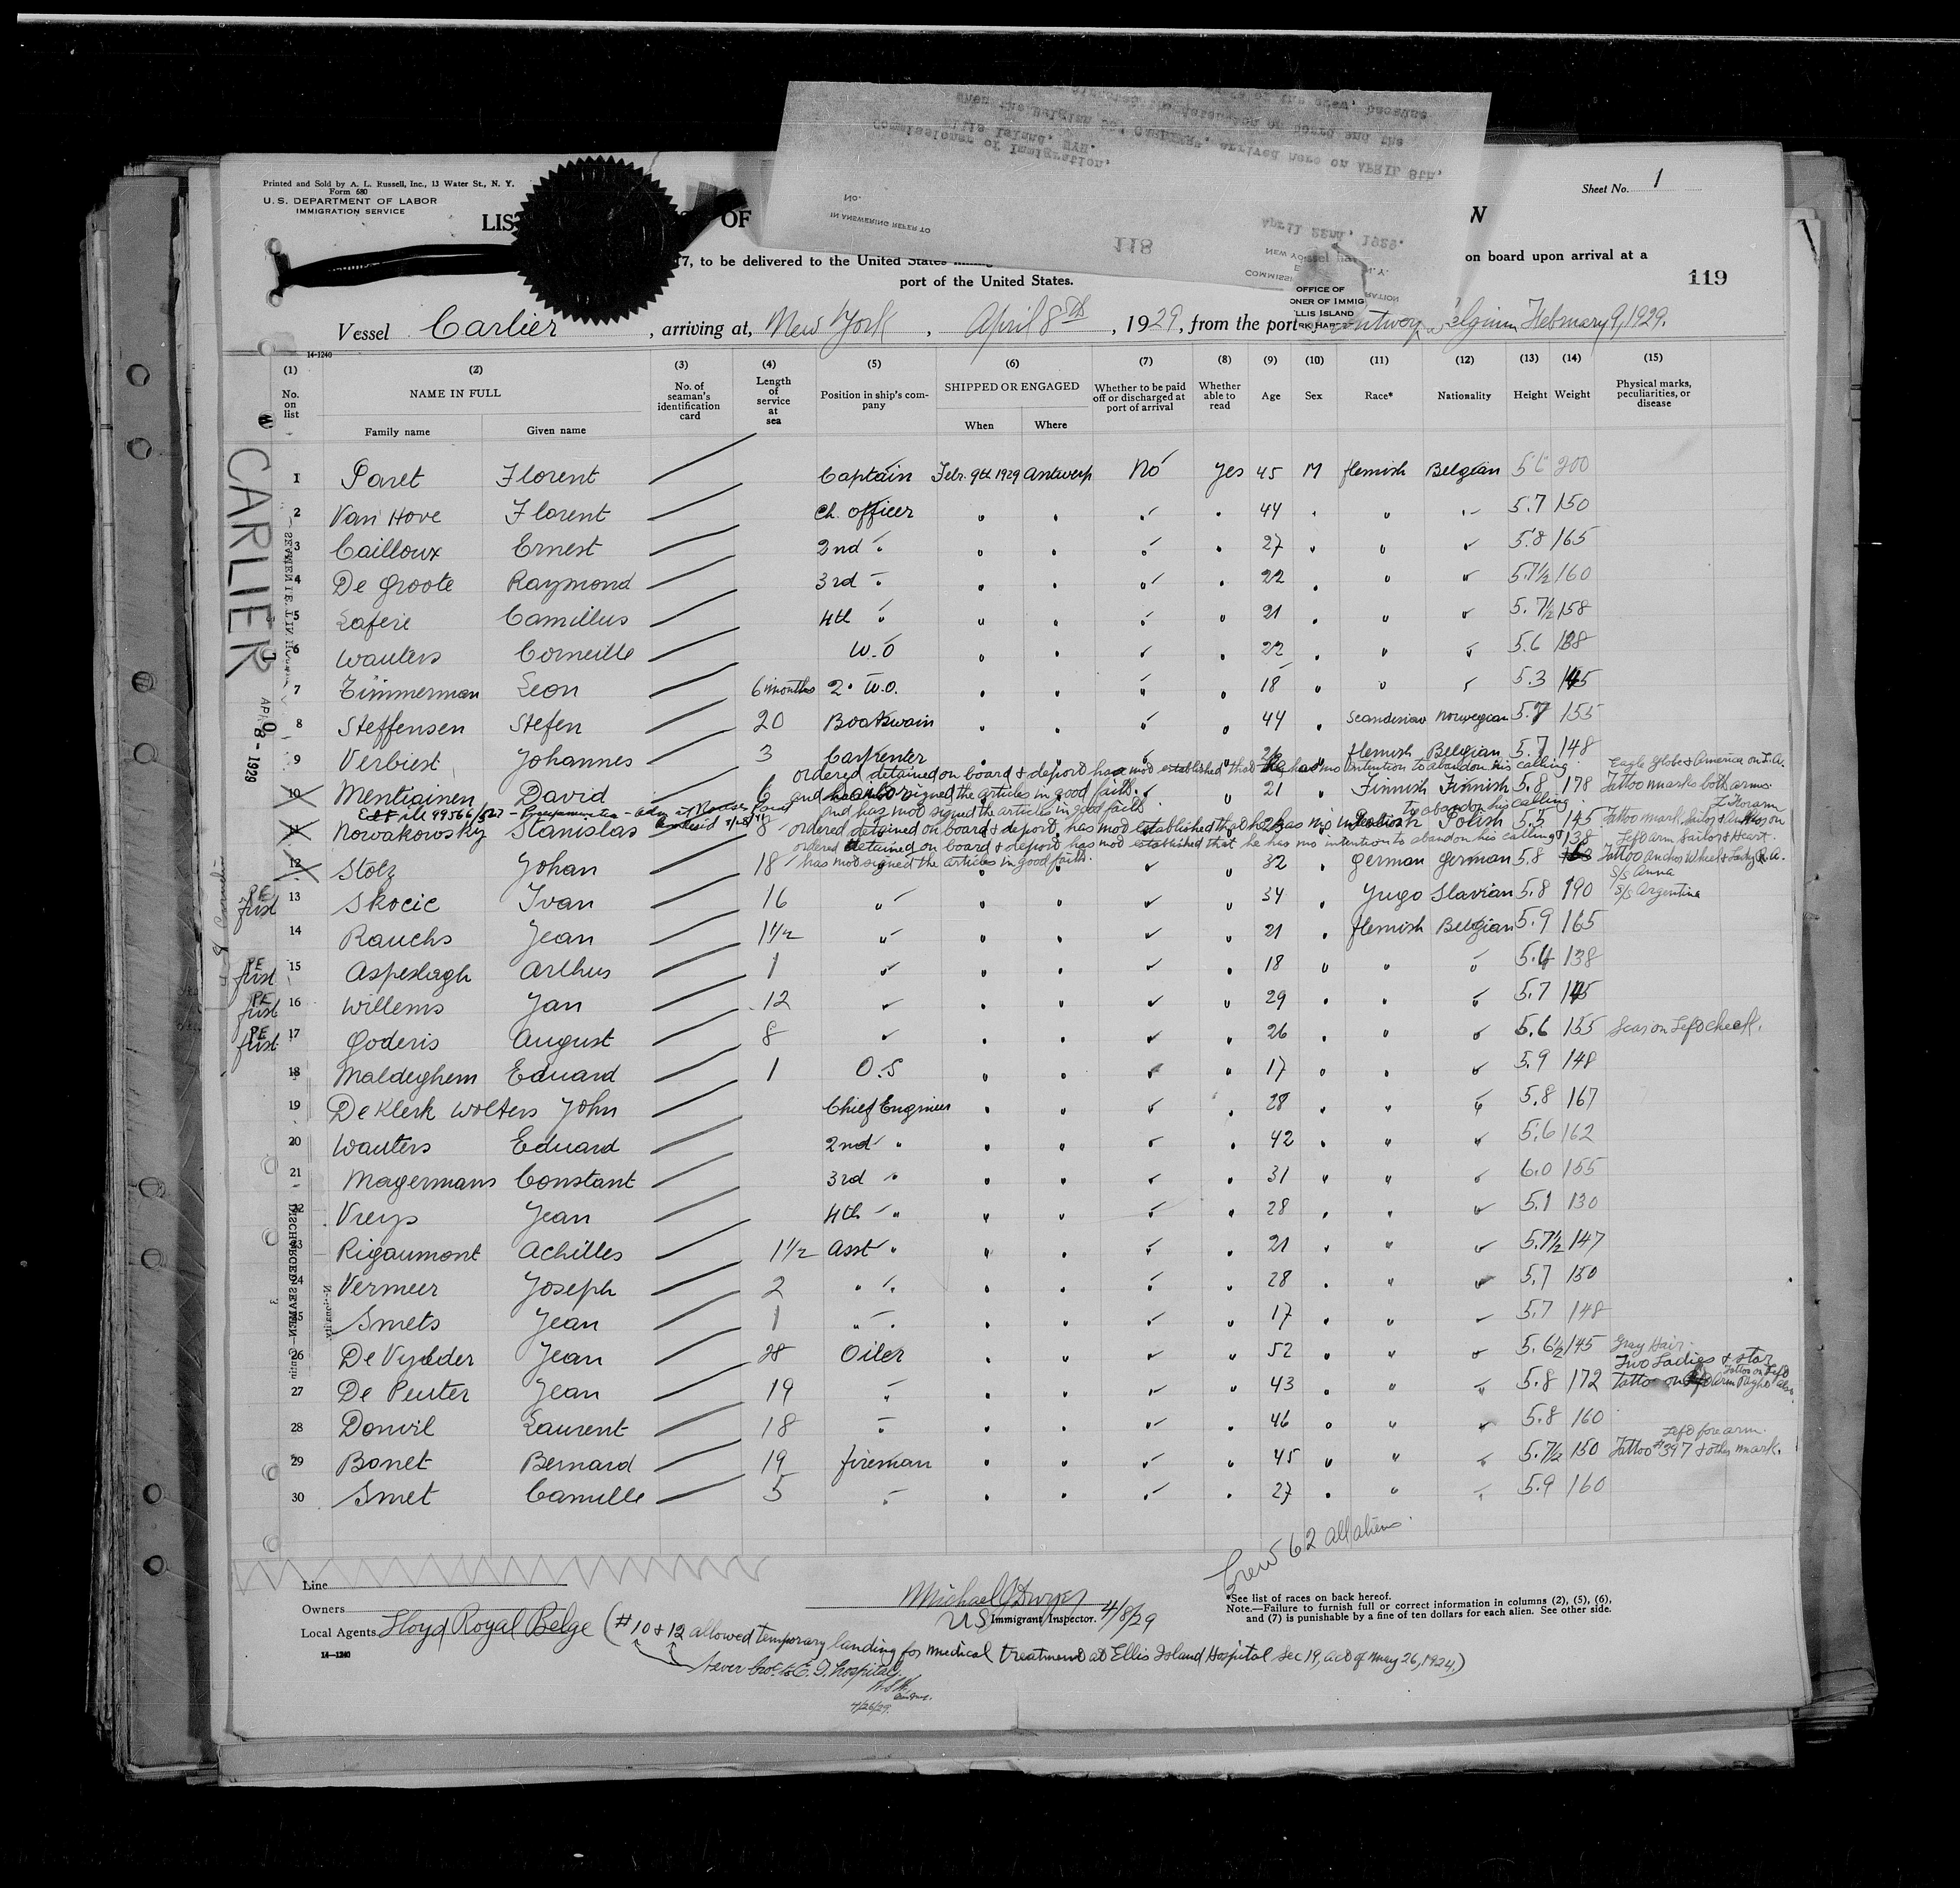 Printed and Sold by A. L. Russell, Inc., 13 Water St., N. Y.
Form 680
U. S. DEPARTMENT OF LABOR
IMMIGRATION SERVICE
Sheet No. 1
LIS OF W
Commissioner of Immigration,
Ellis Island, NYH.
No.
IN ANSWERING REFER TO
118
April 22nd, 1929.
17, to be delivered to the United States on board upon arrival at a
port of the United States.
119
OFFICE OF
Vessel Carlier, arriving at, New York, April 8th, 1929, from the port February 9, 1929.
14-1240
(1) (2) (3) (4) (5) (6) (7) (8) (9) (10) (11) (12) (13) (14) (15)
No. on list NAME IN FULL No. of seaman's identification card Length of service at sea Position in ship's company SHIPPED OR ENGAGED Whether to be paid off or discharged at port of arrival Whether able to read Age Sex Race* Nationality Height Weight Physical marks, peculiarities, or disease
Family name Given name When Where
CARLIER
APR 8 - 1929
1 Paret Florent Captain Febr. 9th 1929 Antwerp No Yes 45 M flemish Belgian 200
2 Van Hove Florent Ch. officer " " " " 44 " " " 5.7 150
3 Cailloux Ernest 2nd " " " " " 27 " " " 5.8 165
4 De Groote Raymond 3rd " " " " " 22 " " " 5.7½ 160
5 Laferie Camillus 4th " " " " " 21 " " " 5.7½ 158
6 Wauters Corneille W.O " " " " 22 " " " 5.6
7 Timmerman Leon 6 months 2. W.O. " " " " 18 " " " 5.3
8 Steffensen Stefen 20 Boatswain " " " " 44 " Scandinav Norwegian 5.7 155
9 Verbiest Johannes 3 Carpenter " " " " 26 flemish Belgian 5.7 148
ordered detained on board & deport has not established that he has no intention to abandon his calling
Eagle Globe & America on L.A.
10 Mentiainen David 6 and has not signed the articles in good faith. 21 " Finnish Finnish 5.8 178 Tattoo marks both arms
and has not signed the articles in good faith to abandon his calling
11 Nowakowsky Stanislas 8 ordered detained on board & deport, has not established that he has no intention Polish 5.5 145 Tattoo mark, Sailor & Anchor on
L. Forearm
ordered detained on board & deport has not established that he has no intention to abandon his calling & 138 Left arm Sailor & Heart.
12 Stolz Johan 18 has not signed the articles in good faith. 32 " German German 5.8 Tattoo Anchor Wheel & Lady R.A.
S/S Anna
13 Skocic Ivan 16 " " " " " 34 " Yugo Slavian 5.8 190 S/S Argentina
14 Rauchs Jean 1½ " " " " " 21 " flemish Belgian 5.9 165
15 Aspeslagh Arthus 1 " " " " " 18 " " " 5.4 138
16 Willems Jan 12 " " " " " 29 " " " 5.7
17 Goderis August 8 " " " " " 26 " " " 5.6 155 Scar on Left cheek.
18 Maldeghem Eduard 1 O.S " " " " 17 " " " 5.9 148
19 De Klerk Wolters John Chief Engineer " " " " 28 " " " 5.8 167
20 Wauters Eduard 2nd " " " " " 42 " " " 5.6 162
21 Magermans Constant 3rd " " " " " 31 " " " 6.0 155
22 Vreys Jean 4th " " " " " 28 " " " 5.1 130
23 Rigaumont Achilles 1½ Asst " " " " " 21 " " " 5.7½ 147
24 Vermeer Joseph 2 " " " " " " 28 " " " 5.7 150
25 Smets Jean 1 " " " " " " 17 " " " 5.7 148
26 De Vylder Jean 28 Oiler " " " " 52 " " " 5.6½ 145 Gray Hair
Two Ladies & star
27 De Peuter Jean 19 " " " " " 43 " " " 5.8 172 Tattoo on Arm Right
28 Donvil Laurent 18 " " " " " 46 " " " 5.8 160
Left forearm
29 Bonet Bernard 19 fireman " " " " 45 " " " 5.7½ 150 Tattoo #397 & other mark.
30 Smet Camille 5 " " " " " 27 " " " 5.9 160
Crew 62 all aliens.
Line
Owners
Local Agents Lloyd Royal Belge (#10 & 12 allowed temporary landing for medical treatment at Ellis Island Hospital Sec 19, Act of May 26, 1924.)
Never bro't to E. I. hospital.
4/26/29.
Michael O'Dwyer
US Immigrant Inspector. 4/8/29
*See list of races on back hereof.
Note.—Failure to furnish full or correct information in columns (2), (5), (6),
and (7) is punishable by a fine of ten dollars for each alien. See other side.
14-1240